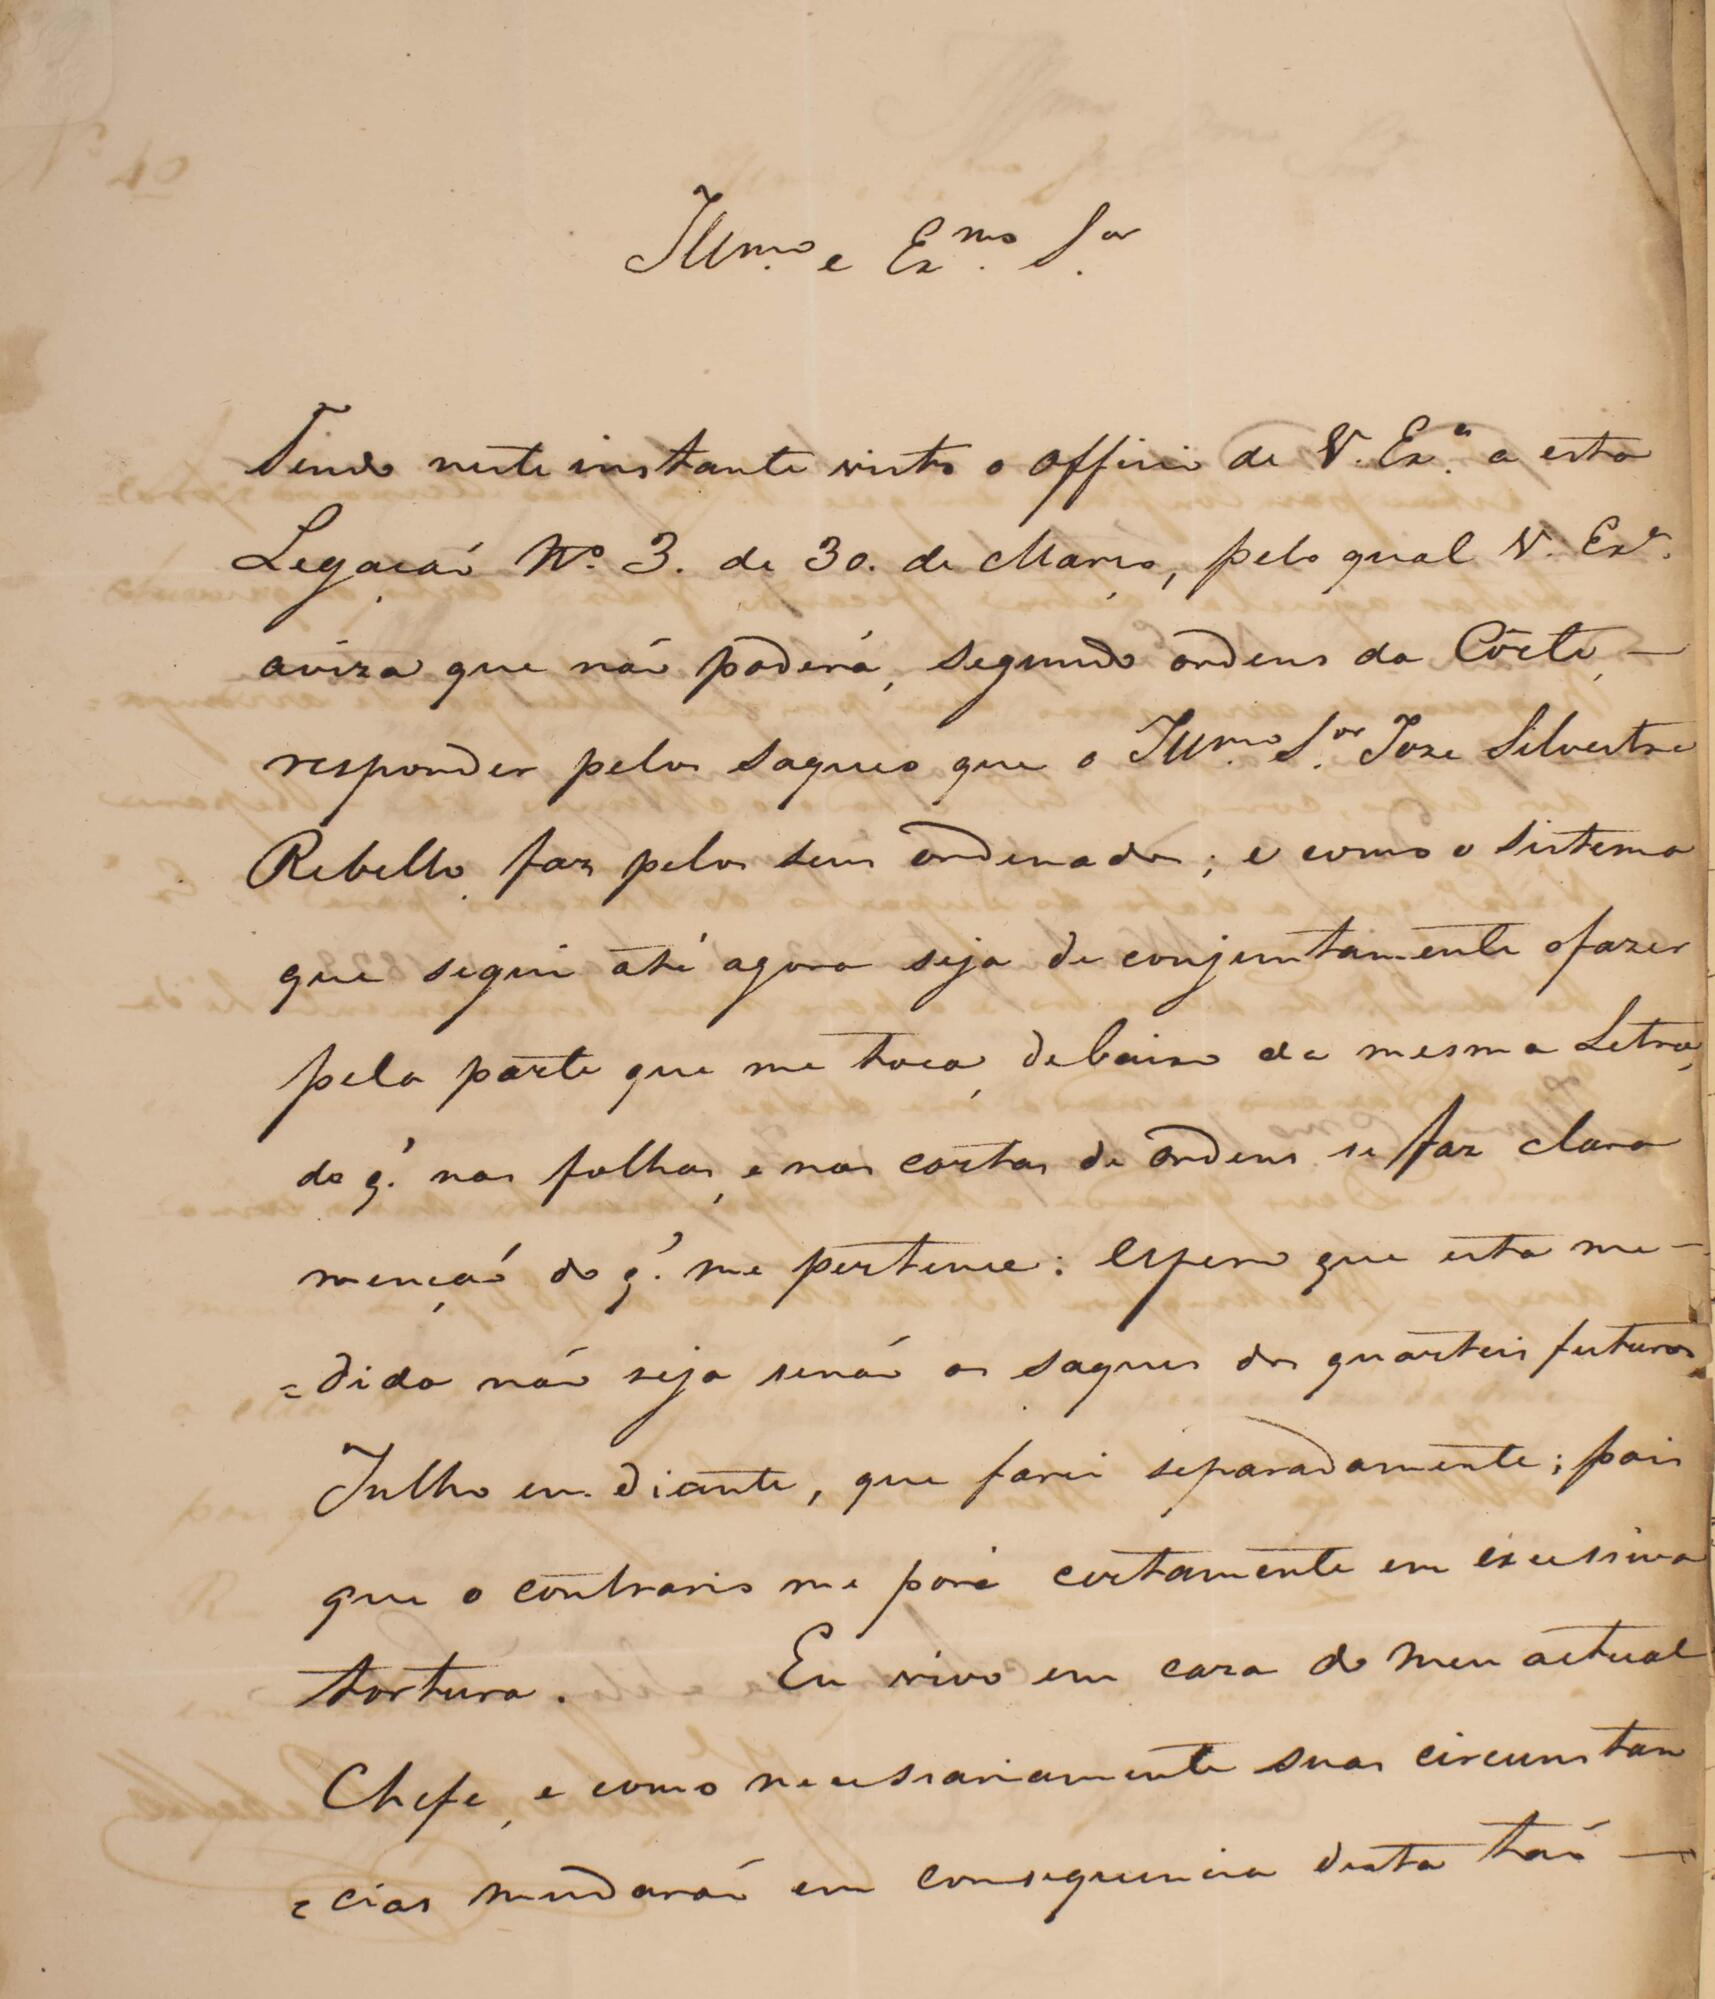 Illmo. e Exmo. Sor.
Tendo neste instante visto o officio de V. Exa. a esta
Legaçaõ No. 3. de 30. de Março, pelo qual V. Exa.
aviza que naõ poderá, segundo ordens da Côrte, —
responder pelos saques que o Illmo. Sor. Joze Silvestre
Rebello faz pelos seus ordenados; e como o sistema
que segui até agora seja de conjuntamente o fazer
pela parte que me toca, debaixo da mesma Letra,
do q.' nas folhas, e nas cartas de ordens se faz clara
mençaõ do q.' me pertence: espero que esta me-
=dida naõ seja senaõ os saques dos quarteis futuros
Julho em diante, que farei separadamente; pois
que o contrario me porá certamente em excessiva
tortura. Eu vivo em caza do meu actual
Chefe, e como necessariamente suas circunstan
=cias mudaraõ em consequencia desta taõ —